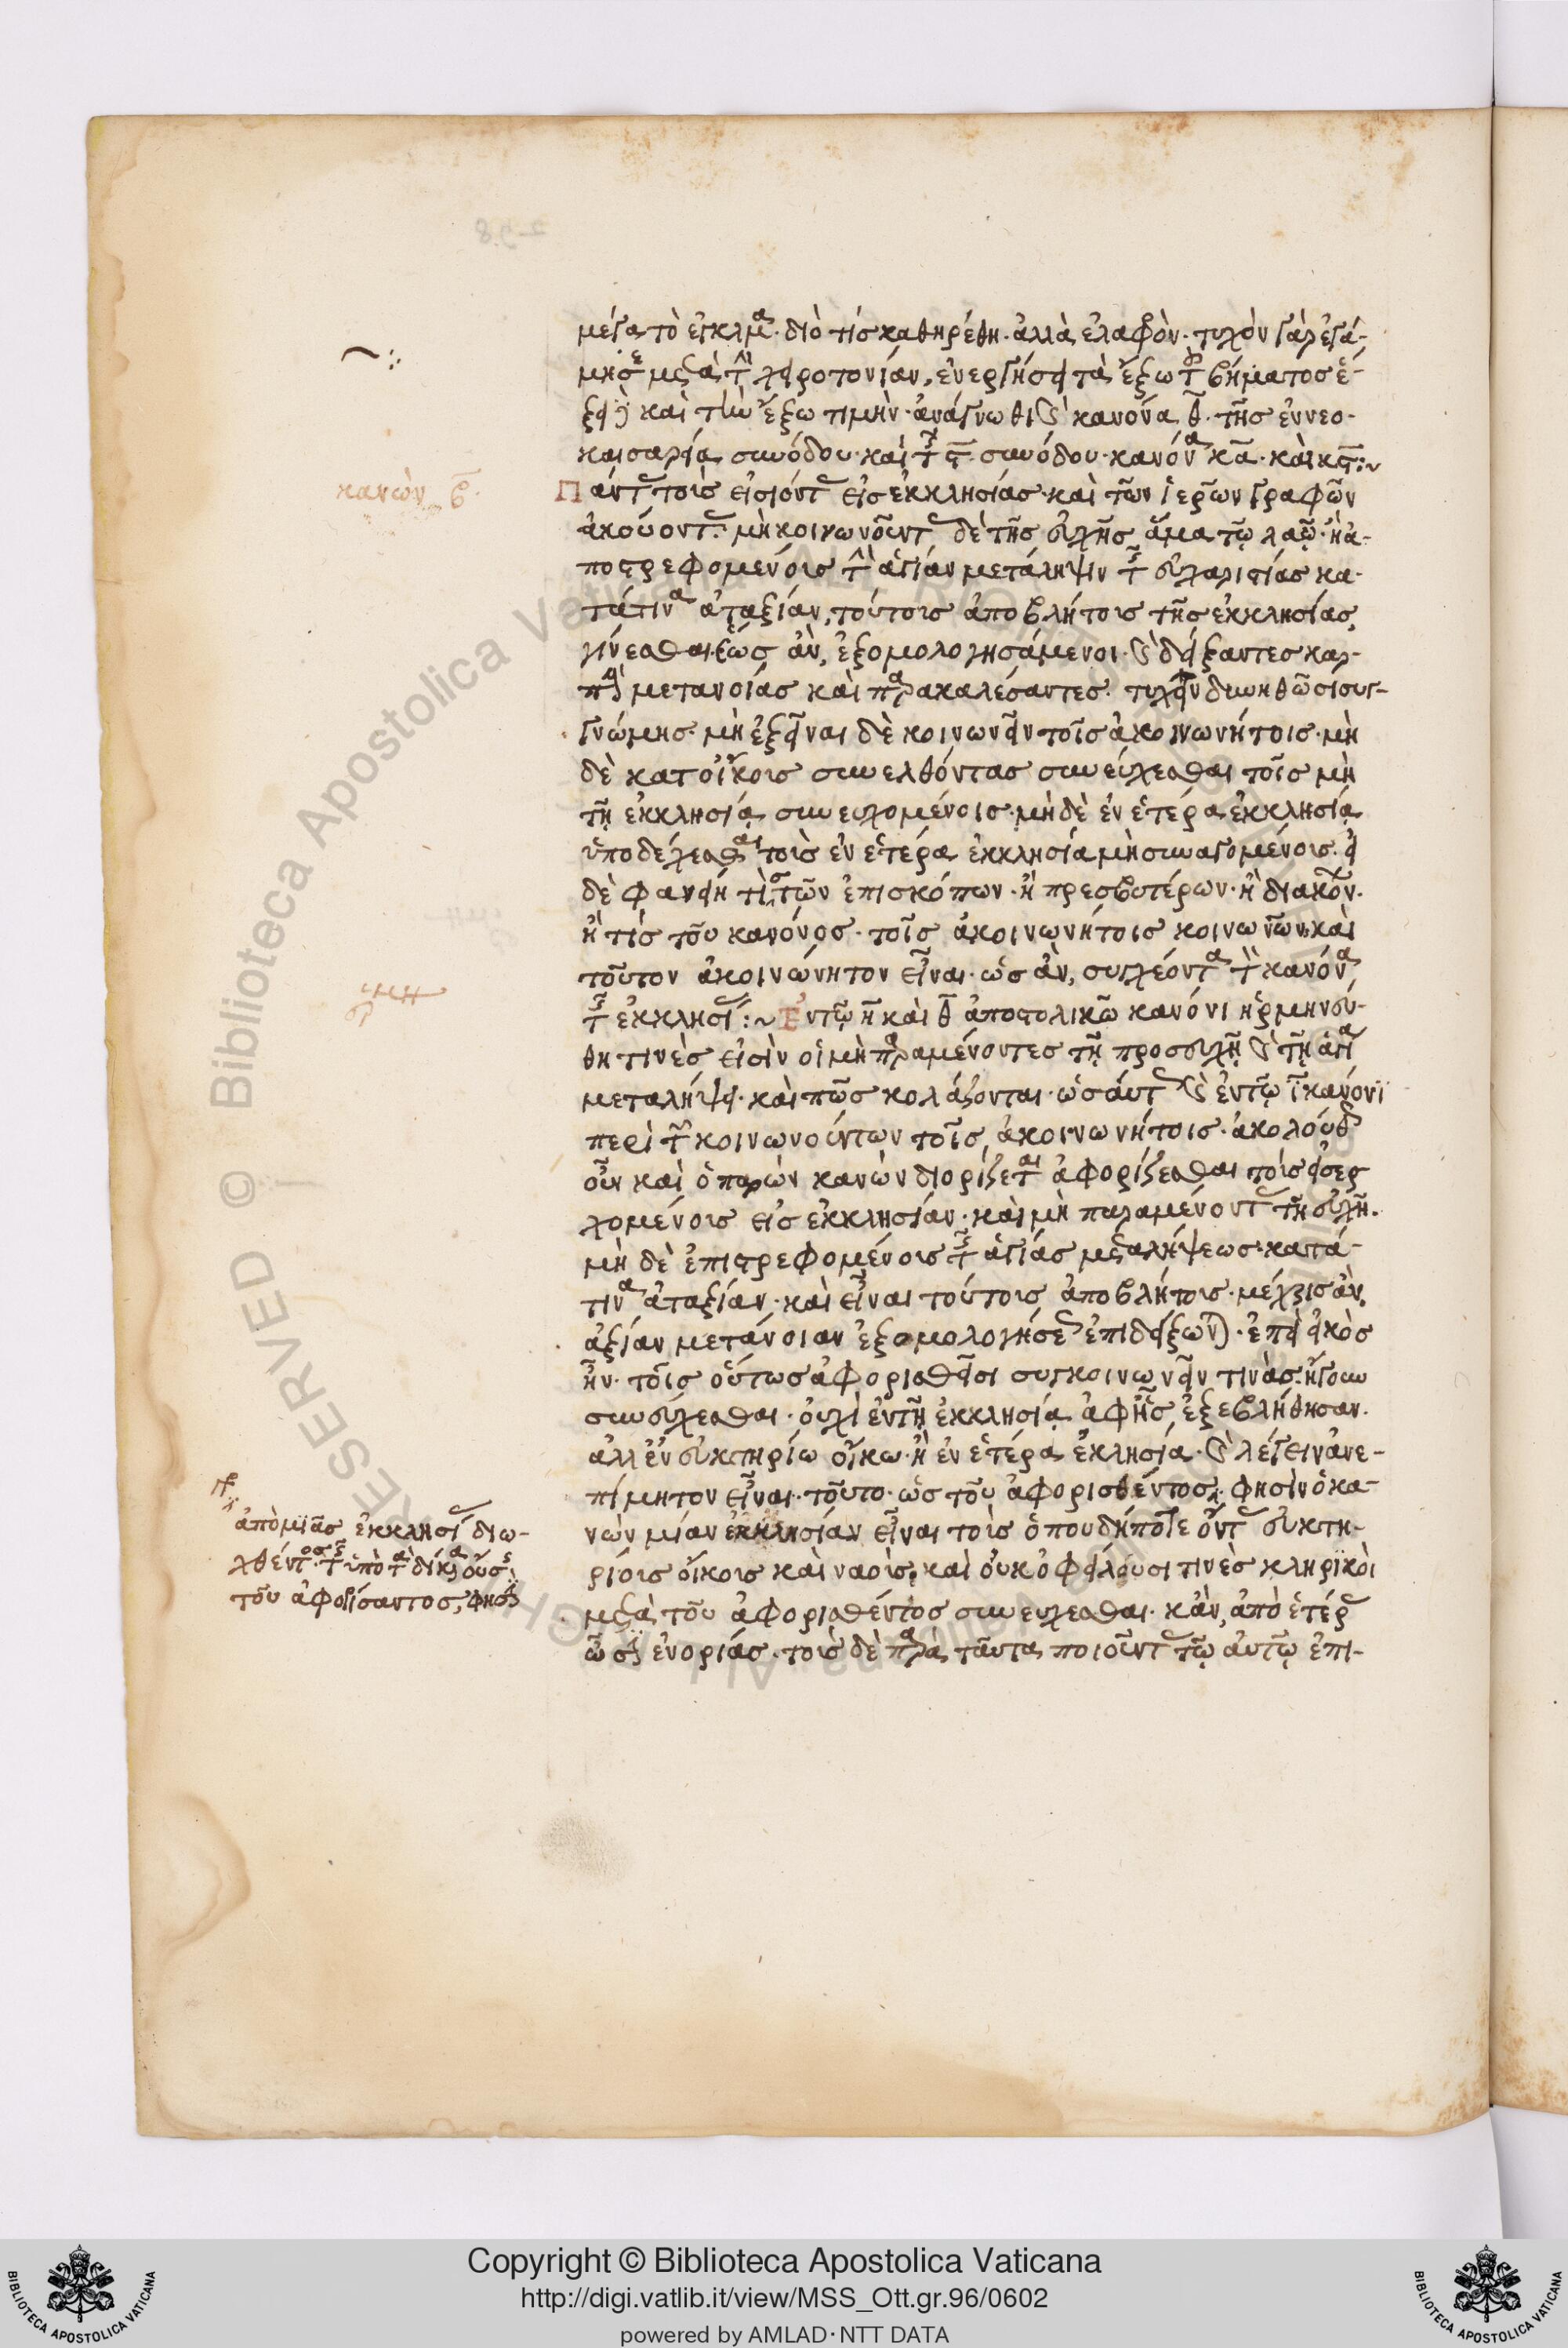 μέγα τὸ ἔγκλημα· διό τις καθηρέθη· ἀλλὰ ἐλαφρὸν· τυχὸν γὰρ ἐγά-
μησε μετὰ τὴν χειροτονίαν, ἐνεργήσει τὰ ἔξω τοῦ βήματος ἕ-
ξει καὶ τὴν ἔξω τιμὴν· ἀνάγνωθι καὶ κανόνα θ̅· τῆς ἐν νεο-
καισαρίᾳ συνόδου· καὶ τῆς ϛ̅ συνόδου· κανόνα κα̅· καὶ κϛ̅:~
κανὼν β̅·
Πάντας τοὺς εἰσιόντας εἰς ἐκκλησίας· καὶ τῶν ἱερῶν γραφῶν
ἀκούοντας· μὴ κοινωνοῦντας δὲ τῆς εὐχῆς ἅμα τῷ λαῷ· ἢ ἀ-
ποστρεφομένους τὴν ἁγίαν μετάληψιν τῆς εὐχαριστίας κα-
τά τινα ἀταξίαν, τούτους ἀποβλήτους τῆς ἐκκλησίας
γίνεσθαι ἕως ἂν, ἐξομολογησάμενοι· καὶ δείξαντες καρ-
ποὺς μετανοίας καὶ παρακαλέσαντες· τυχεῖν δυνηθῶσι συγ-
γνώμης· μὴ ἐξεῖναι δὲ κοινωνεῖν τοῖς ἀκοινωνήτοις· μὴ
δὲ κατ οἴκους συνελθόντας συνεύχεσθαι τοῖς μὴ
τῇ ἐκκλησίᾳ συνευχομένοις· μὴ δὲ ἐν ἑτέρα ἐκκλησίᾳ
ὑποδέχεσθαι τοὺς ἐν ἑτέρα ἐκκλησία μὴ συναγομένους· εἰ
δὲ φανείη τὶς τῶν ἐπισκόπων· ἢ πρεσβυτέρων· ἢ διακόνων·
ἤ τις τοῦ κανόνος· τοῖς ἀκοινωνήτοις κοινωνῶν, καὶ
τοῦτον ἀκοινώνητον εἶναι· ὡς ἂν, συγχέοντα τὸν κανόνα
τῆς ἐκκλησίας:~ Ἐν τῷ η̅ καὶ θ̅ ἀποστολικῶ κανόνι ἡρμηνεύ-
θη τινὲς εἰσὶν οἱ μὴ παραμένοντες τῇ προσευχῇ καὶ τῇ ἁγία
μεταλήψει· καὶ πῶς κολάζονται· ὡσαύτως καὶ ἐν τῷ ι̅ κανόνι
περὶ τῶν κοινωνούντων τοῖς ἀκοινωνήτοις· ἀκολούθως
οὖν καὶ ὁ παρὼν κανὼν διορίζεται ἀφορίζεσθαι τοὺς εἰσερ
χομένους εἰς ἐκκλησίαν· καὶ μὴ παραμένοντας τῇ εὐχῇ·
μὴ δὲ ἐπιστρεφομένους τῆς ἁγίας μεταλήψεως· κατά-
τινα ἀταξίαν· καὶ εἶναι τούτους ἀποβλήτους· μέχρις ἂν,
ἀξίαν μετάνοιαν ἐξομολογήσεως ἐπιδείξωνται· ἐπεὶ εἰκὸς
ἦν· τοῖς οὕτως ἀφορισθεῖσι συγκοινωνεῖν τινὰς· ἤγουν
συνεύχεσθαι· οὐχὶ ἐν τῇ ἐκκλησίᾳ ἀφ ἧς ἐξεβλήθησαν·
ἀλλ ἐν εὐκτηρίω οἴκω· ἢ ἐν ἑτέρα ἐκλησία· καὶ λέγειν ἀνε-
πίμητον εἶναι· τοῦτο· ὡς τοῦ ἀφορισθέντος, φησὶν ὁ κα-
νὼν μίαν ἐκκλησίαν εἶναι τοὺς ὅπου δήποτε ὄντας εὐκτη-
ρίους οἴκους καὶ ναοὺς· καὶ οὐκ ὀφείλουσι τινὲς κληρικοὶ
μετὰ τοῦ ἀφορισθέντος συνευχεσθαι· κἂν, ἀπὸ ἑτέρας
ὦσιν ἐνορίας· τοὺς δὲ παρὰ ταῦτα ποιοῦντας τῷ αὐτῷ ἐπι-
ἀπὸ μιᾶς ἐκκλησίας διω-
χθέντος· τῆς ὑπὸ τὰ δίκαια οὔσης
τοῦ ἀφορίσαντος, φησὶ
Copyright © Biblioteca Apostolica Vaticana
http://digi.vatlib.it/view/MSS_Ott.gr.96/0602
powered by AMLAD·NTT DATA
BIBLIOTECA APOSTOLICA VATICANA
BIBLIOTECA APOSTOLICA VATICANA